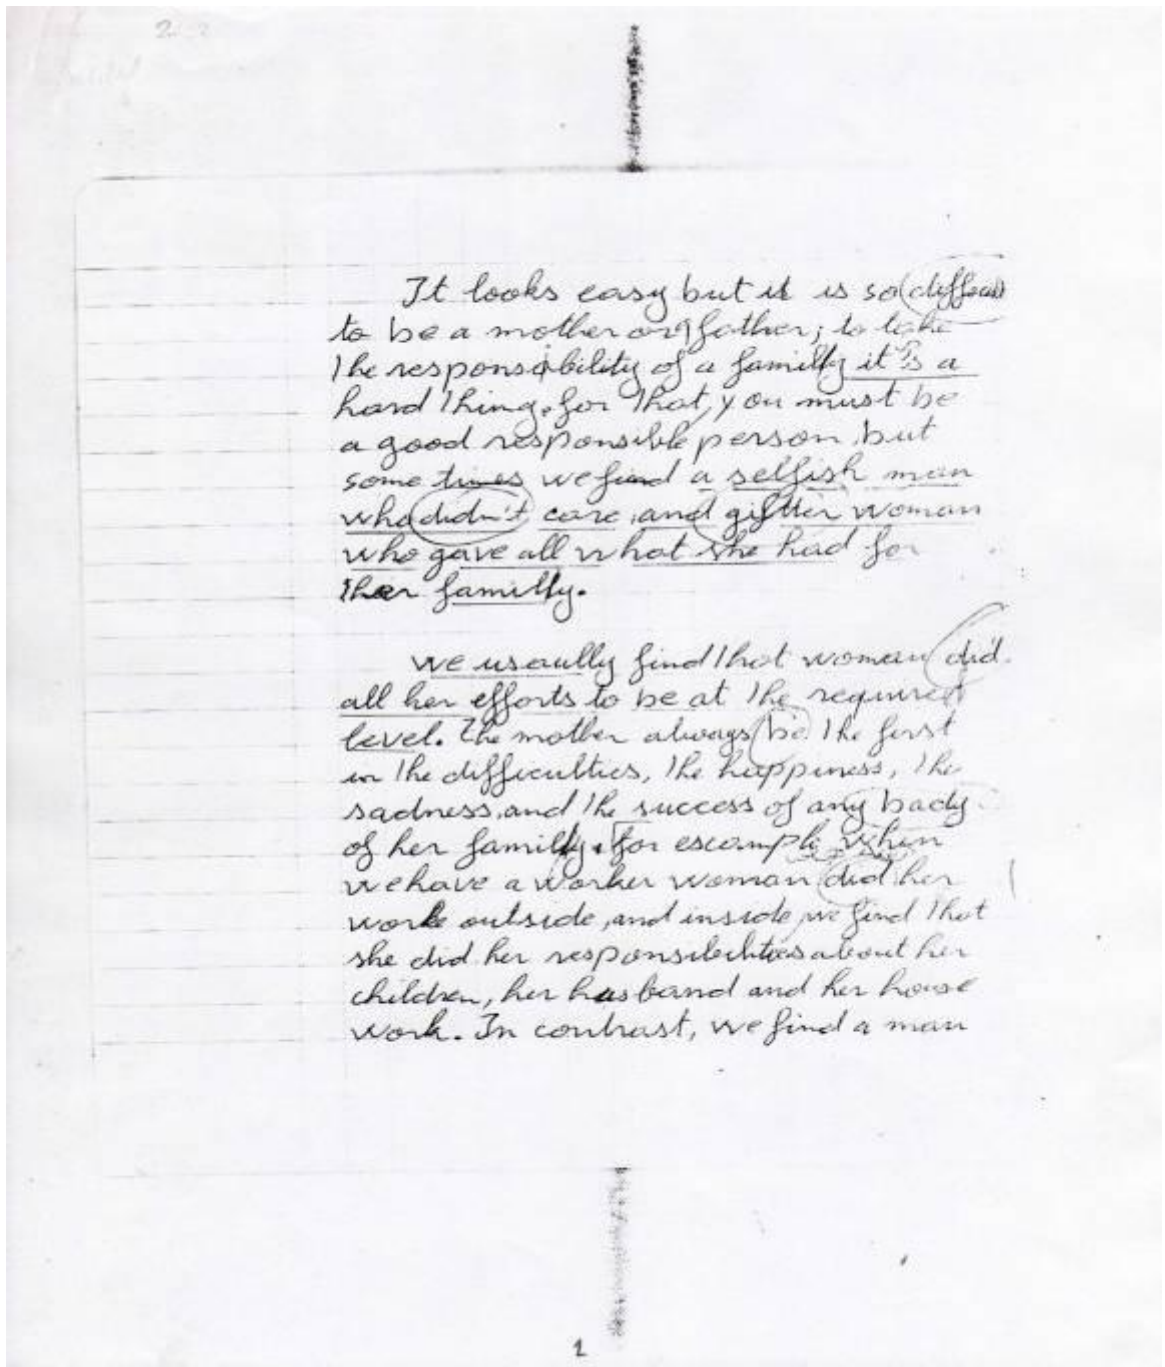 It looks easy but it is so
to be a mother or father; to take
the responsibility of a familly it is a
hard thing. for that, you must be
a good responsible person, but
some times we find a selfish man
who didn't care, and woman
who gave all what she had for
her familly.
we usaully find that woman did
all her efforts to be at the required
level. The mother always be the first
in the difficulties, the happiness, the
sadness, and the success of any bady
of her familly. for escample when
we have a worker woman did her
work outside, and inside, we find that
she did her responsibilities about her
children, her husband and her house
work. In contrast, we find a man
1